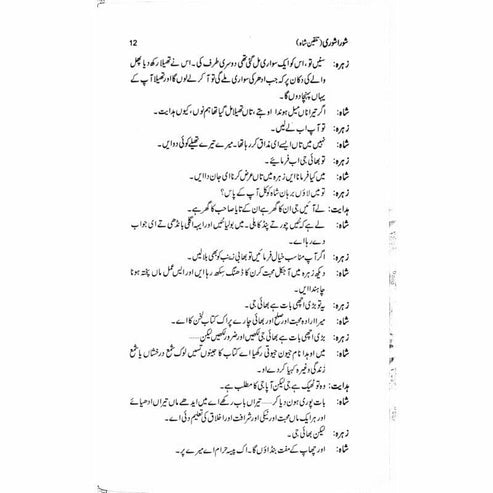 شورا شوری (تلقین شاہ) 12
زہرہ: سنیں تو، اس کو ایک سواری مل گئی تھی دوسری طرف کی۔ اس نے تھیلا رکھ دیا پھل
والے کی دکان پہ کہ جب ادھر کی سواری ملے گی تو آ کر لے لوں گا اور تھیلا آپ کے
یہاں پہنچا دوں گا۔
شاہ: اگر تیرا ناں میل ہوندا اوہتے، تاں تھیلا مل گیا تھا ہم نوں، کیوں ہدایت۔
زہرہ: تو آپ اب لے لیں۔
شاہ: نہیں میں تاں ایسے ای مذاق کر رہا تھا۔ میرے تیرے تھیلے کوئی دو ایں۔
زہرہ: تو بھائی جی اب فرمائیے۔
شاہ: میں کیا فرمانا ایں زہرہ میں تاں عرض کرنا ای جان دا ایں۔
زہرہ: تو میں لاؤں برہان شاہ کو کل آپ کے پاس؟
ہدایت: لے آئیں جی ان کا گھر ہے ان کے تایا صاحب کا گھر ہے۔
شاہ: لے کہئیں چورتے پنڈ کاہلی۔ میں بولیا نئیں اور ایہہ اگلی باندھی تے ای جواب
دے رہا اے۔
زہرہ: اگر آپ مناسب خیال فرمائیں تو بھابی زینب کو بھی بلا لیں۔
شاہ: دیکھ زہرہ میں آجکل محبت کرن کا ڈھنگ سیکھ رہا ایں اور ایس عمل ماں پختہ ہونا
چاہندا ایں۔
زہرہ: یہ تو بڑی اچھی بات ہے بھائی جی۔
شاہ: میرا ارادہ محبت اور صلح اور بھائی چارے پر اک کتاب لکھن کا اے۔
زہرہ: بڑی اچھی بات ہے بھائی جی لکھیں اور ضرور لکھیں لیکن۔۔۔۔
شاہ: میں اوہدا نام جیون جیوتی رکھیا اے کتاب کا جینوں تسیں لوک شمع درخشاں یا شمع
زندگی وغیرہ کہیا کر دے او۔
ہدایت: وہ تو ٹھیک ہے جی لیکن آپا جی کا مطلب ہے۔
شاہ: بات پوری ہون دیا کر۔۔۔۔ تیراں باب رکھے اے میں ایدھے ماں تیراں ادھیائے
اور ہر ایک ماں محبت اور نیکی اور شرافت اور اخلاق کی تعلیم دئی اے۔
زہرہ: لیکن بھائی جی۔
شاہ: اور چھاپ کے مفت ونڈاؤں گا۔ اک پیسہ حرام اے میرے پر۔